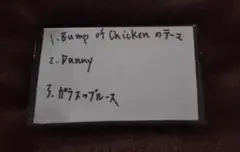 1. Bump of Chickenのテーマ
2. Danny
3. ガラスのブルース